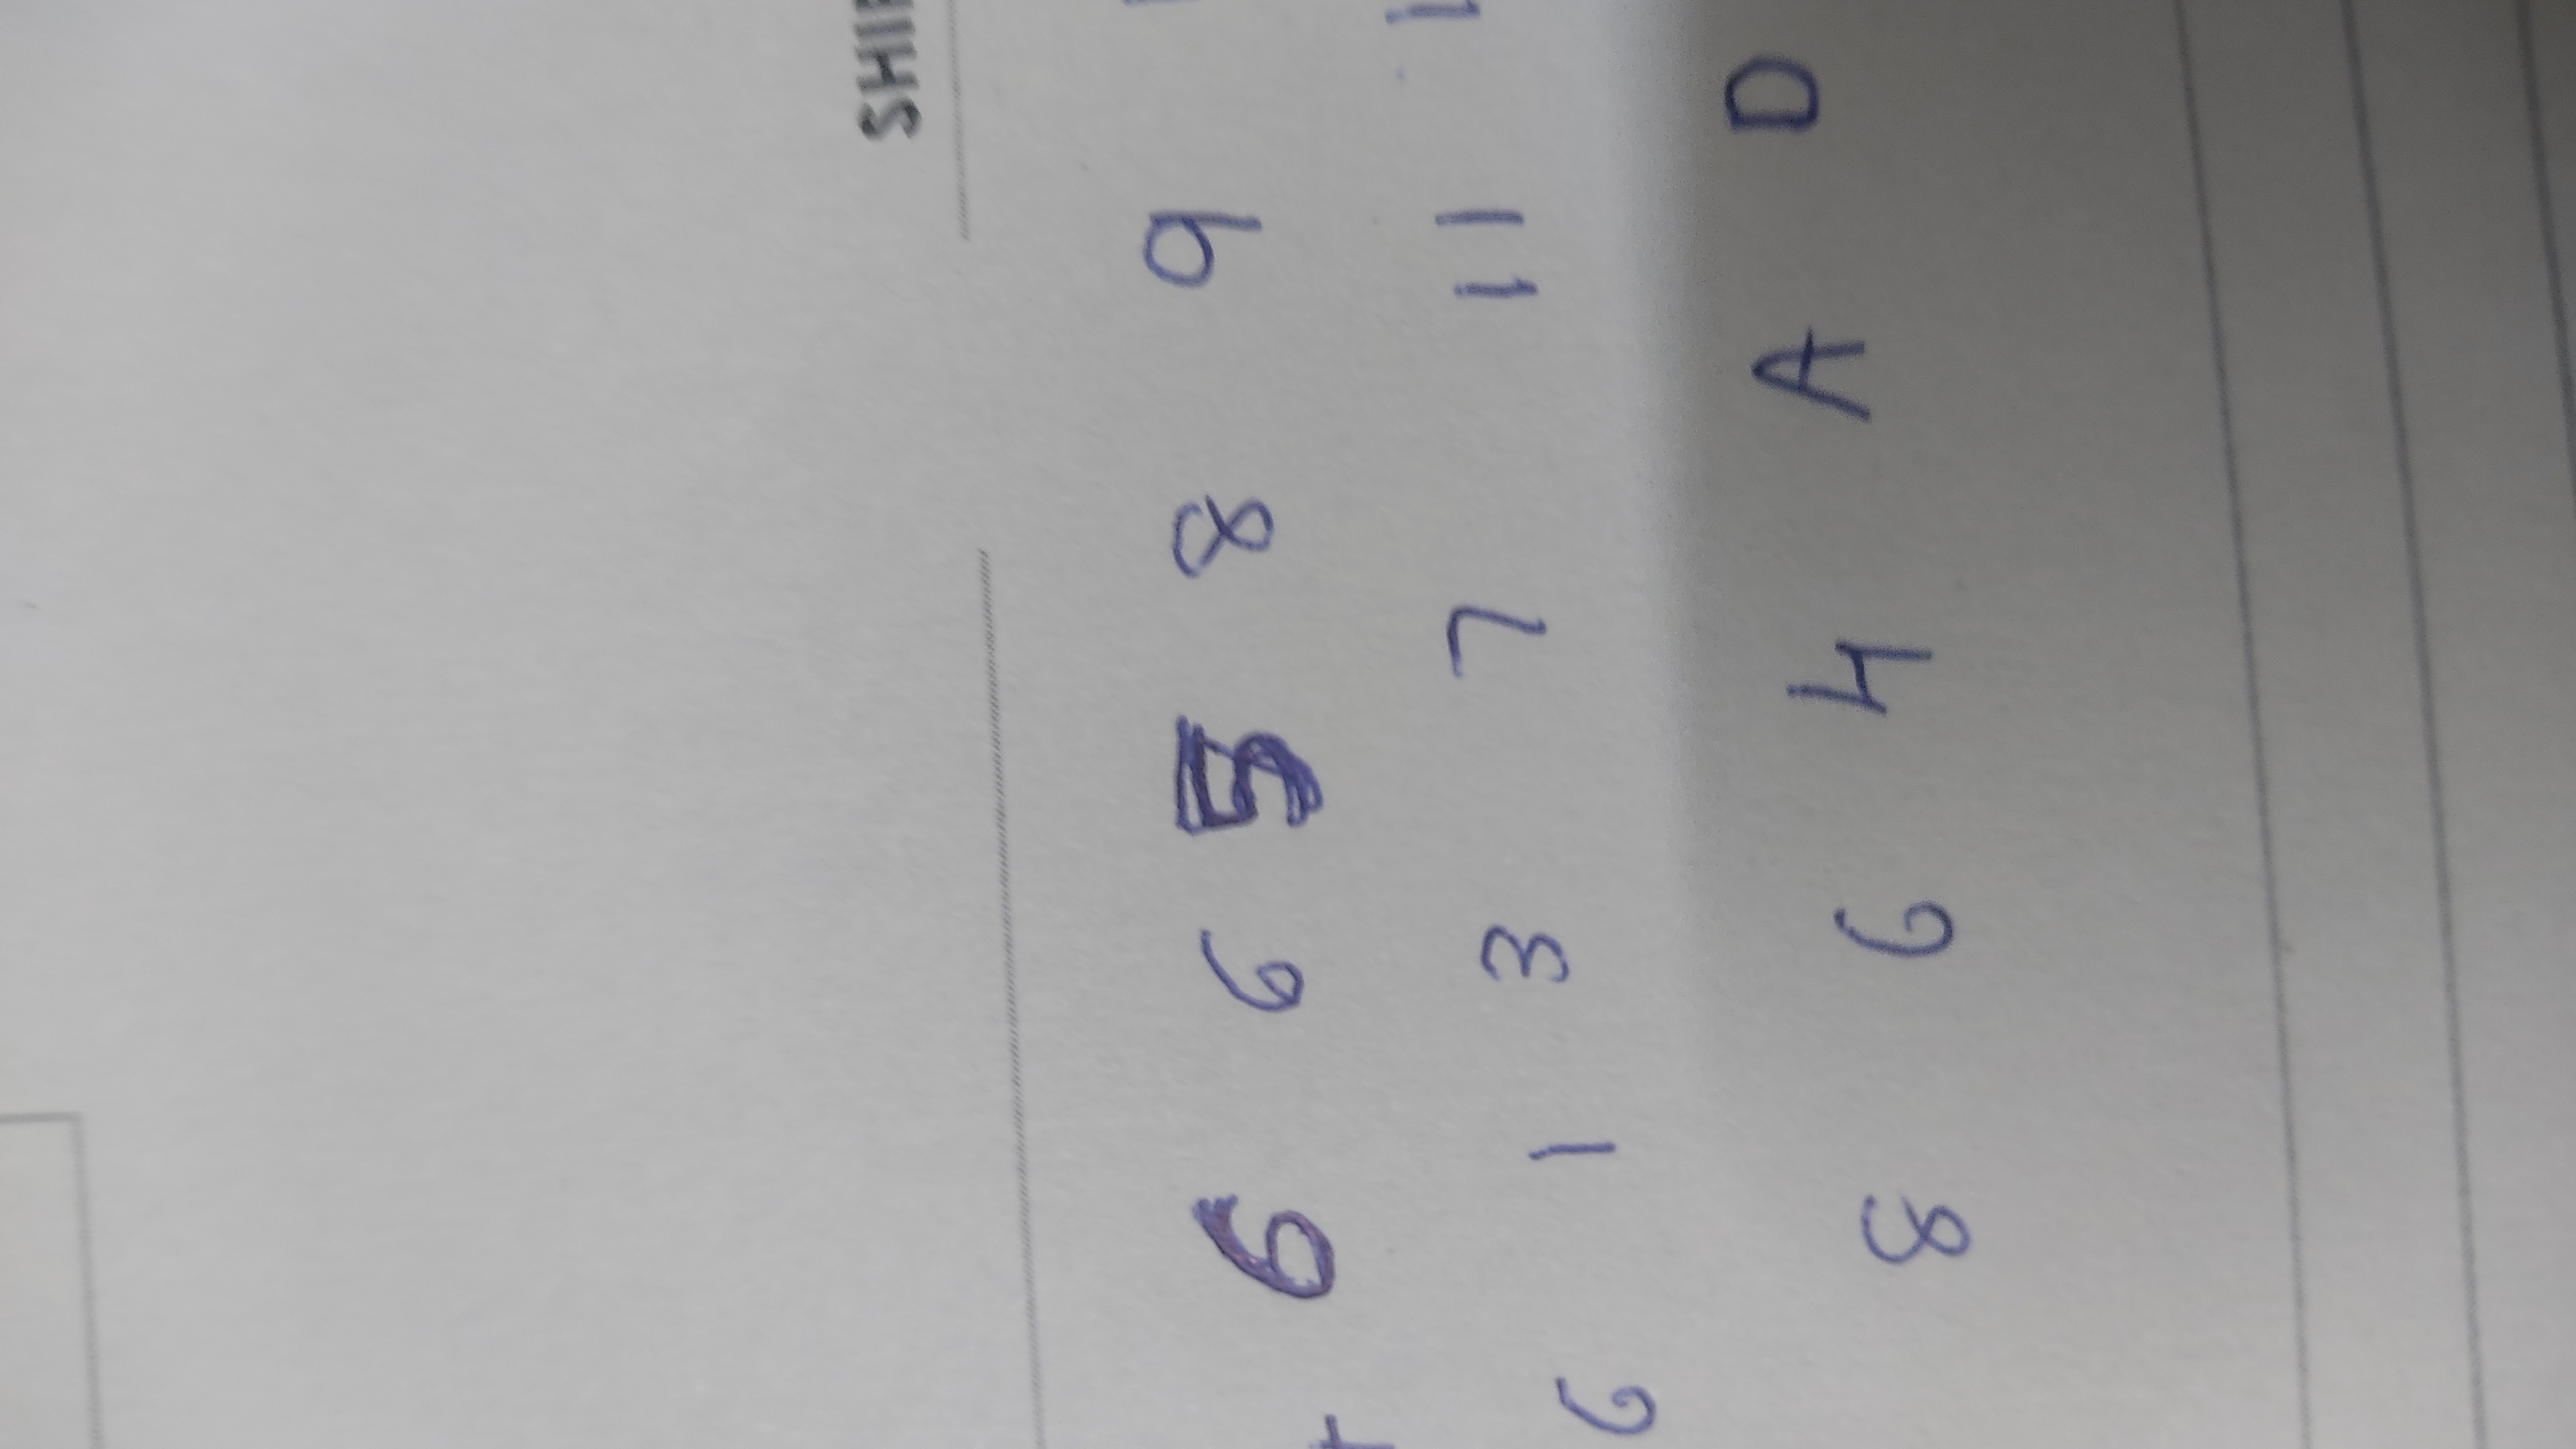 SHI
6 6 5 8 9
6 1 3 7 11
8 6 4 A D